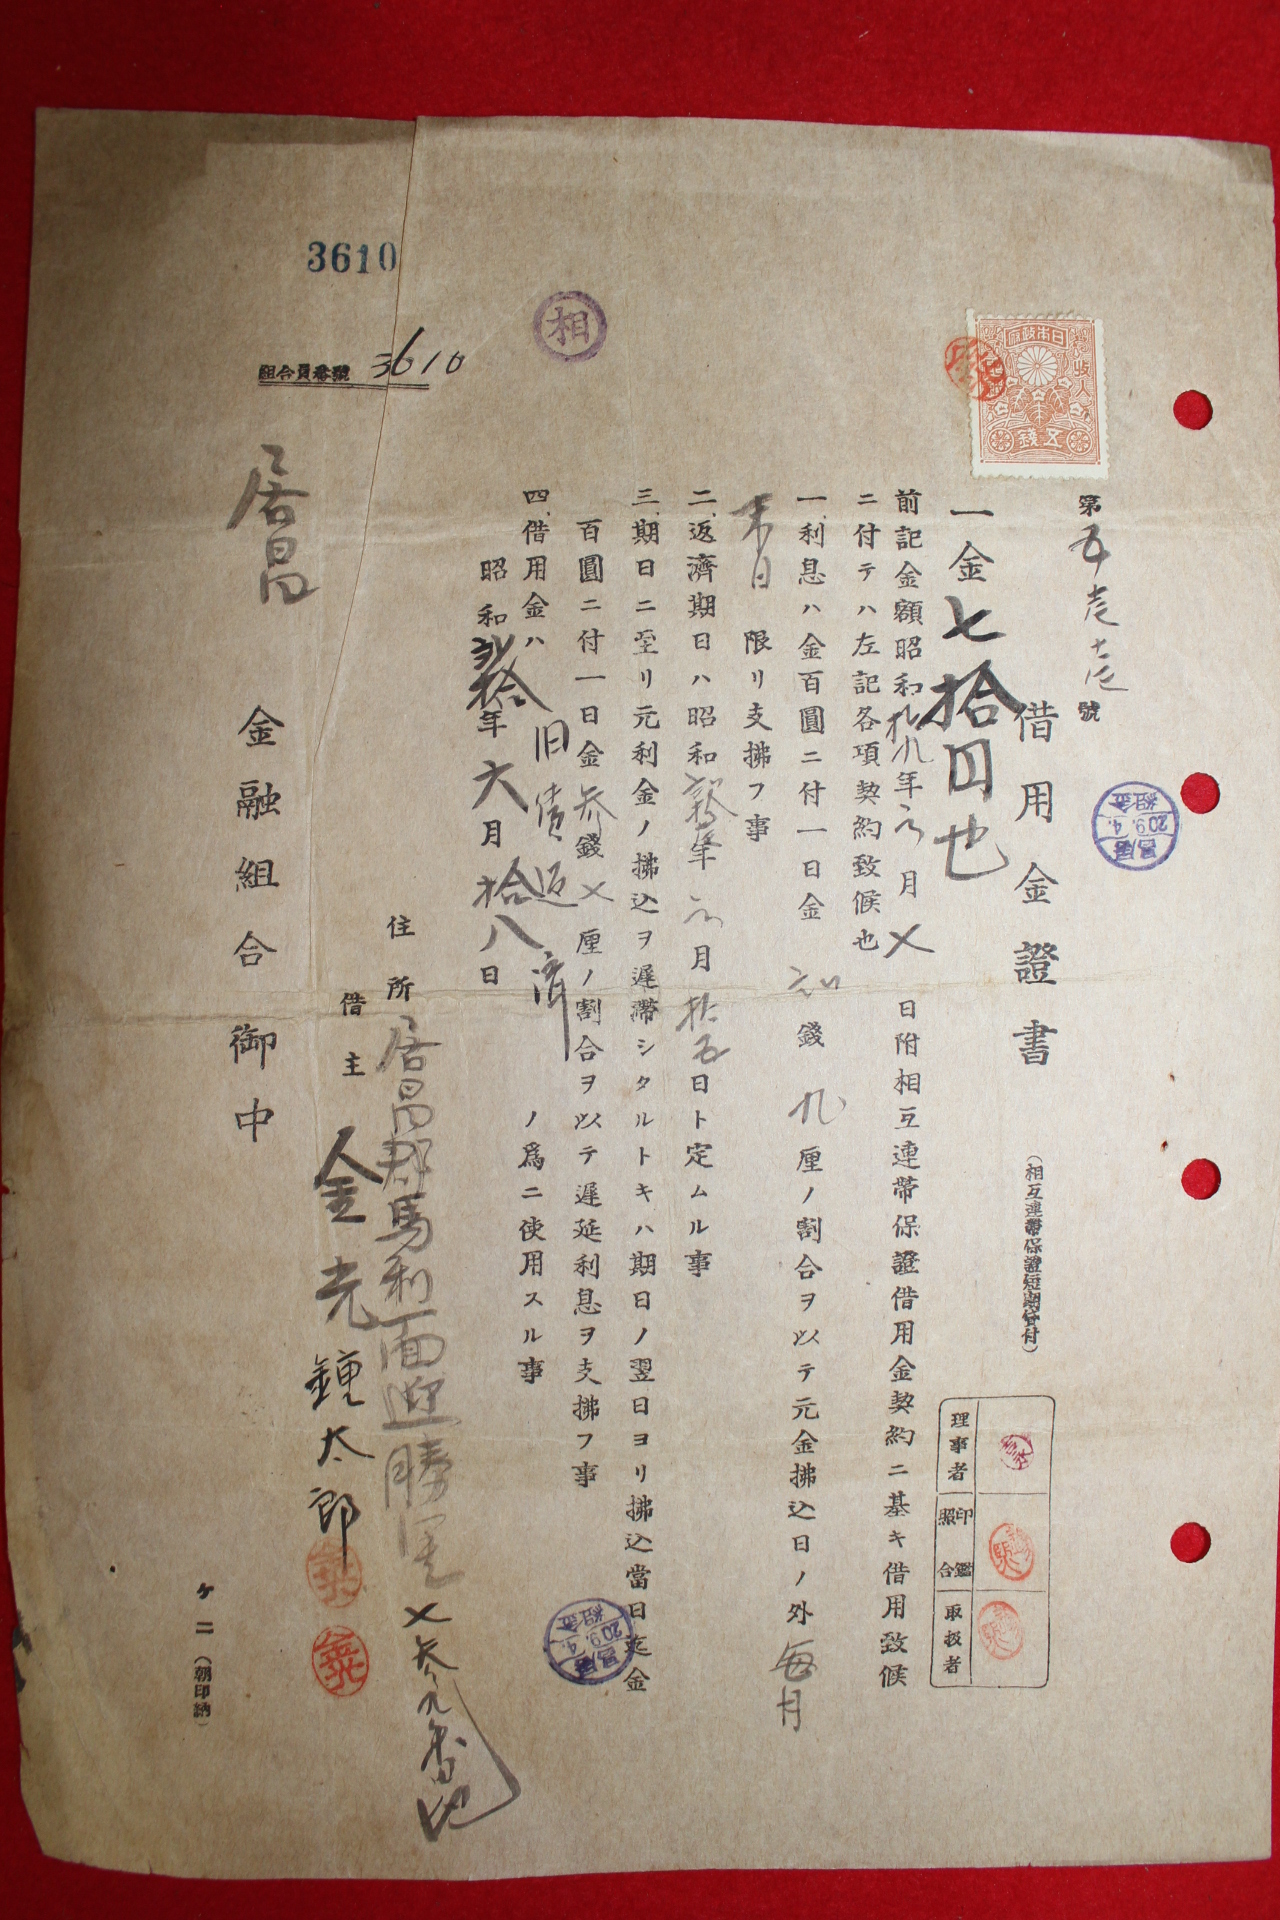 第五壱壱號
借用金證書
(相互連帶保證短期貸付)
日本政府
收入印紙
五錢
居昌
20.9.4.
組金
理事者
印鑑照合
取扱者
一金七拾四也
前記金額昭和拾九年 月 日附相互連帶保證借用金契約ニ基キ借用致候
ニ付テハ左記各項契約致候也
一、利息ハ金百圓ニ付一日金 錢九厘ノ割合ヲ以テ元金拂込日ノ外每月
末日限リ支拂フ事
二、返濟期日ハ昭和 年 月拾五日ト定ムル事
三、期日ニ至リ元利金ノ拂込ヲ遲滯シタルトキハ期日ノ翌日ヨリ拂込當日迄金
百圓ニ付一日金參錢 厘ノ割合ヲ以テ遲延利息ヲ支拂フ事
四、借用金ハ旧債返濟ノ爲ニ使用スル事
昭和貳拾年六月拾八日
相
居昌
20.9.4.
組金
住所 居昌郡馬利面迎勝里七参九番地
借主 金光鍾太郎
3610
組合員番號 3610
居昌金融組合御中
ケ二(朝印納)